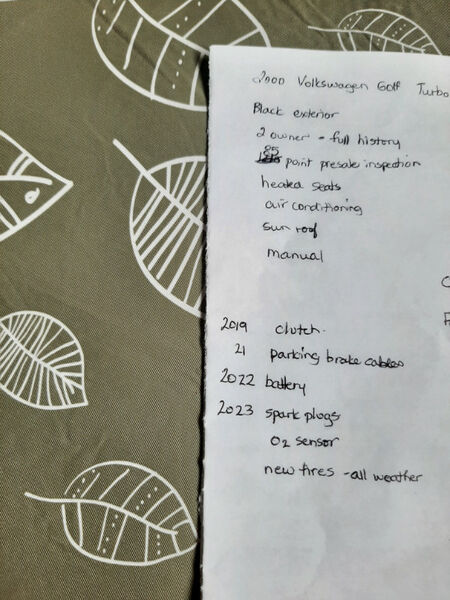 2000 Volkswagen Golf Turbo
Black exterior
2 owner - full history
85 point presale inspection
heated seats
air conditioning
sun roof
manual
2019 clutch.
21 parking brake cables
2022 battery
2023 spark plugs
O2 sensor
new tires - all weather